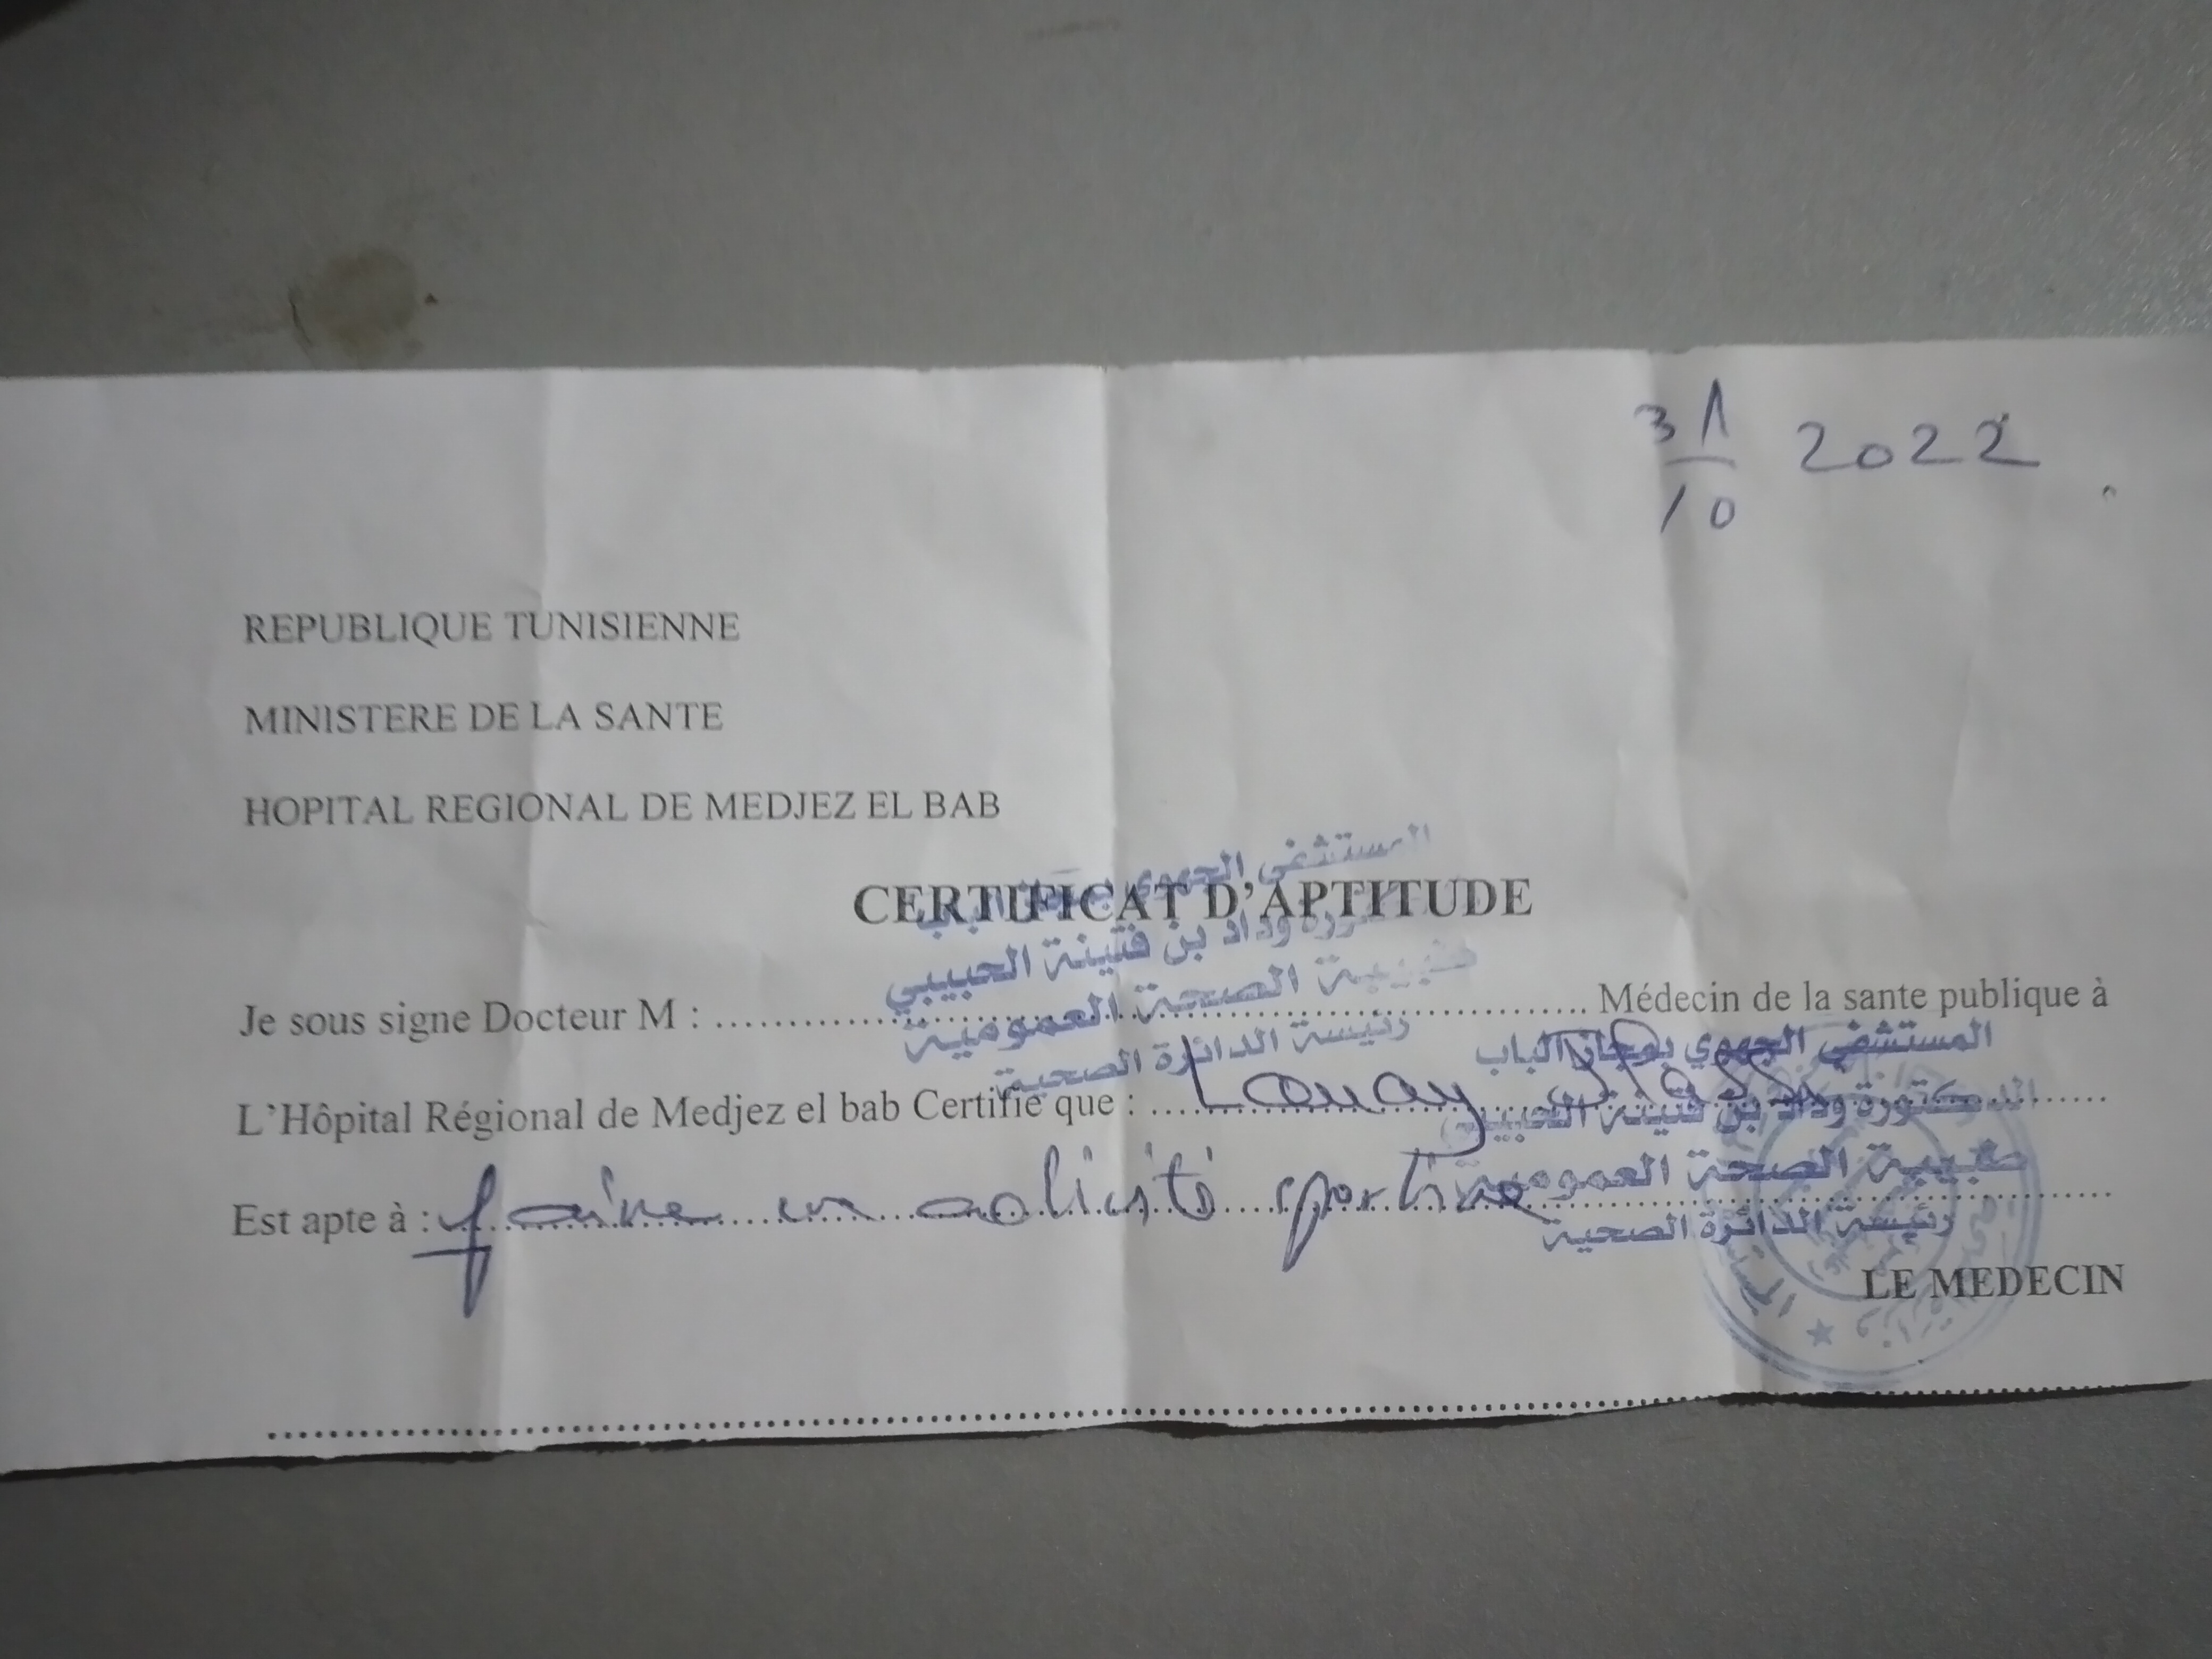 31/10 2022
REPUBLIQUE TUNISIENNE
MINISTERE DE LA SANTE
HOPITAL REGIONAL DE MEDJEZ EL BAB
CERTIFICAT D'APTITUDE
المستشفى الجهوي بمجاز الباب
وداد بن فتينة الحبيبي
طبيبة الصحة العمومية
رئيسة الدائرة الصحية
Je sous signe Docteur M : Médecin de la sante publique à
L'Hôpital Régional de Medjez el bab Certifie que : Louay
Est apte à : faire un activité sportive
المستشفى الجهوي بمجاز الباب
الدكتورة وداد بن فتينة الحبيبي
طبيبة الصحة العمومية
رئيسة الدائرة الصحية
LE MEDECIN